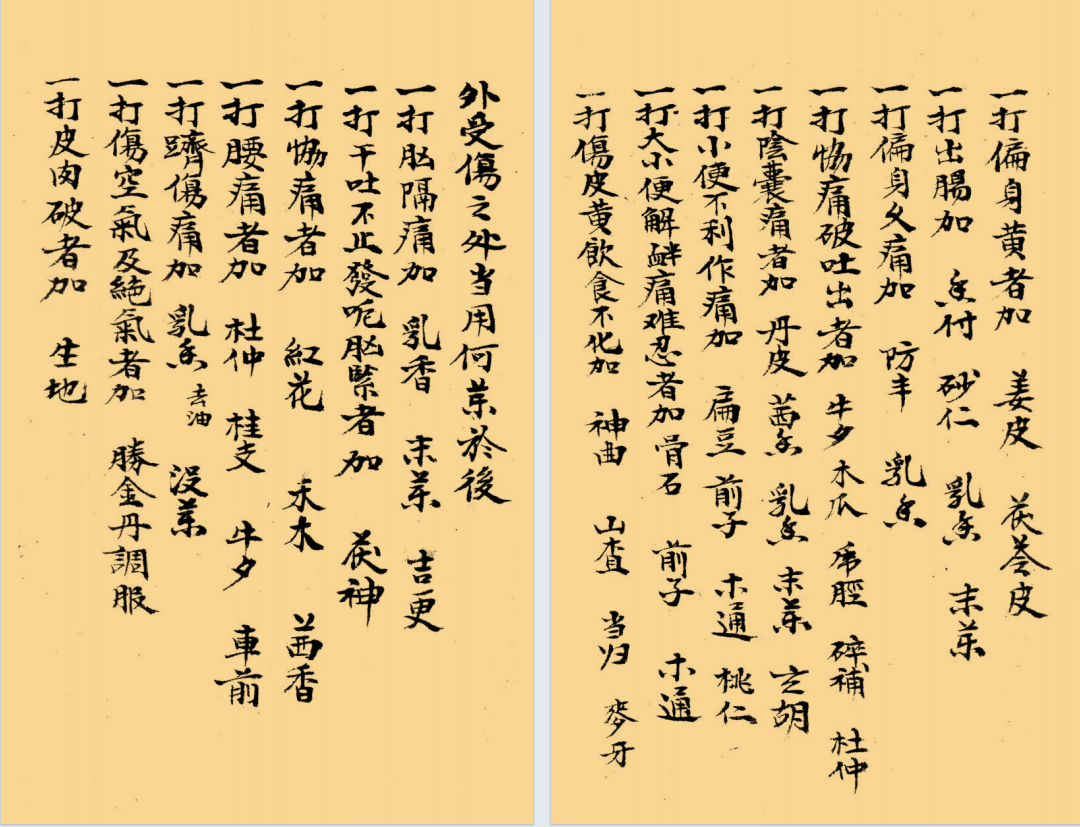 一打偏身黄者加 姜皮 茯苓皮
一打出腸加 香付 砂仁 乳香 末药
一打偏身久痛加 防丰 乳香
一打恊痛破吐出者加 牛夕 木瓜 虎脛 碎補 杜仲
一打陰囊痛者加 丹皮 茜香 乳香 末药 玄胡
一打小便不利作痛加 扁豆 前子 木通 桃仁
一打大小便解衅痛难忍者加 骨石 前子 木通
一打傷皮黄飲食不化加 神曲 山查 当归 麥牙
外受傷之外当用何药於後
一打胘隔痛加 乳香 末药 吉更
一打干吐不止發呃胘緊者加 茯神
一打恊痛者加 紅花 禾木 茜香
一打腰痛者加 杜仲 桂支 牛夕 車前
一打躋傷痛加 乳香 去油 没药
一打傷空氣及絕氣者加 勝金丹調服
一打皮肉破者加 生地